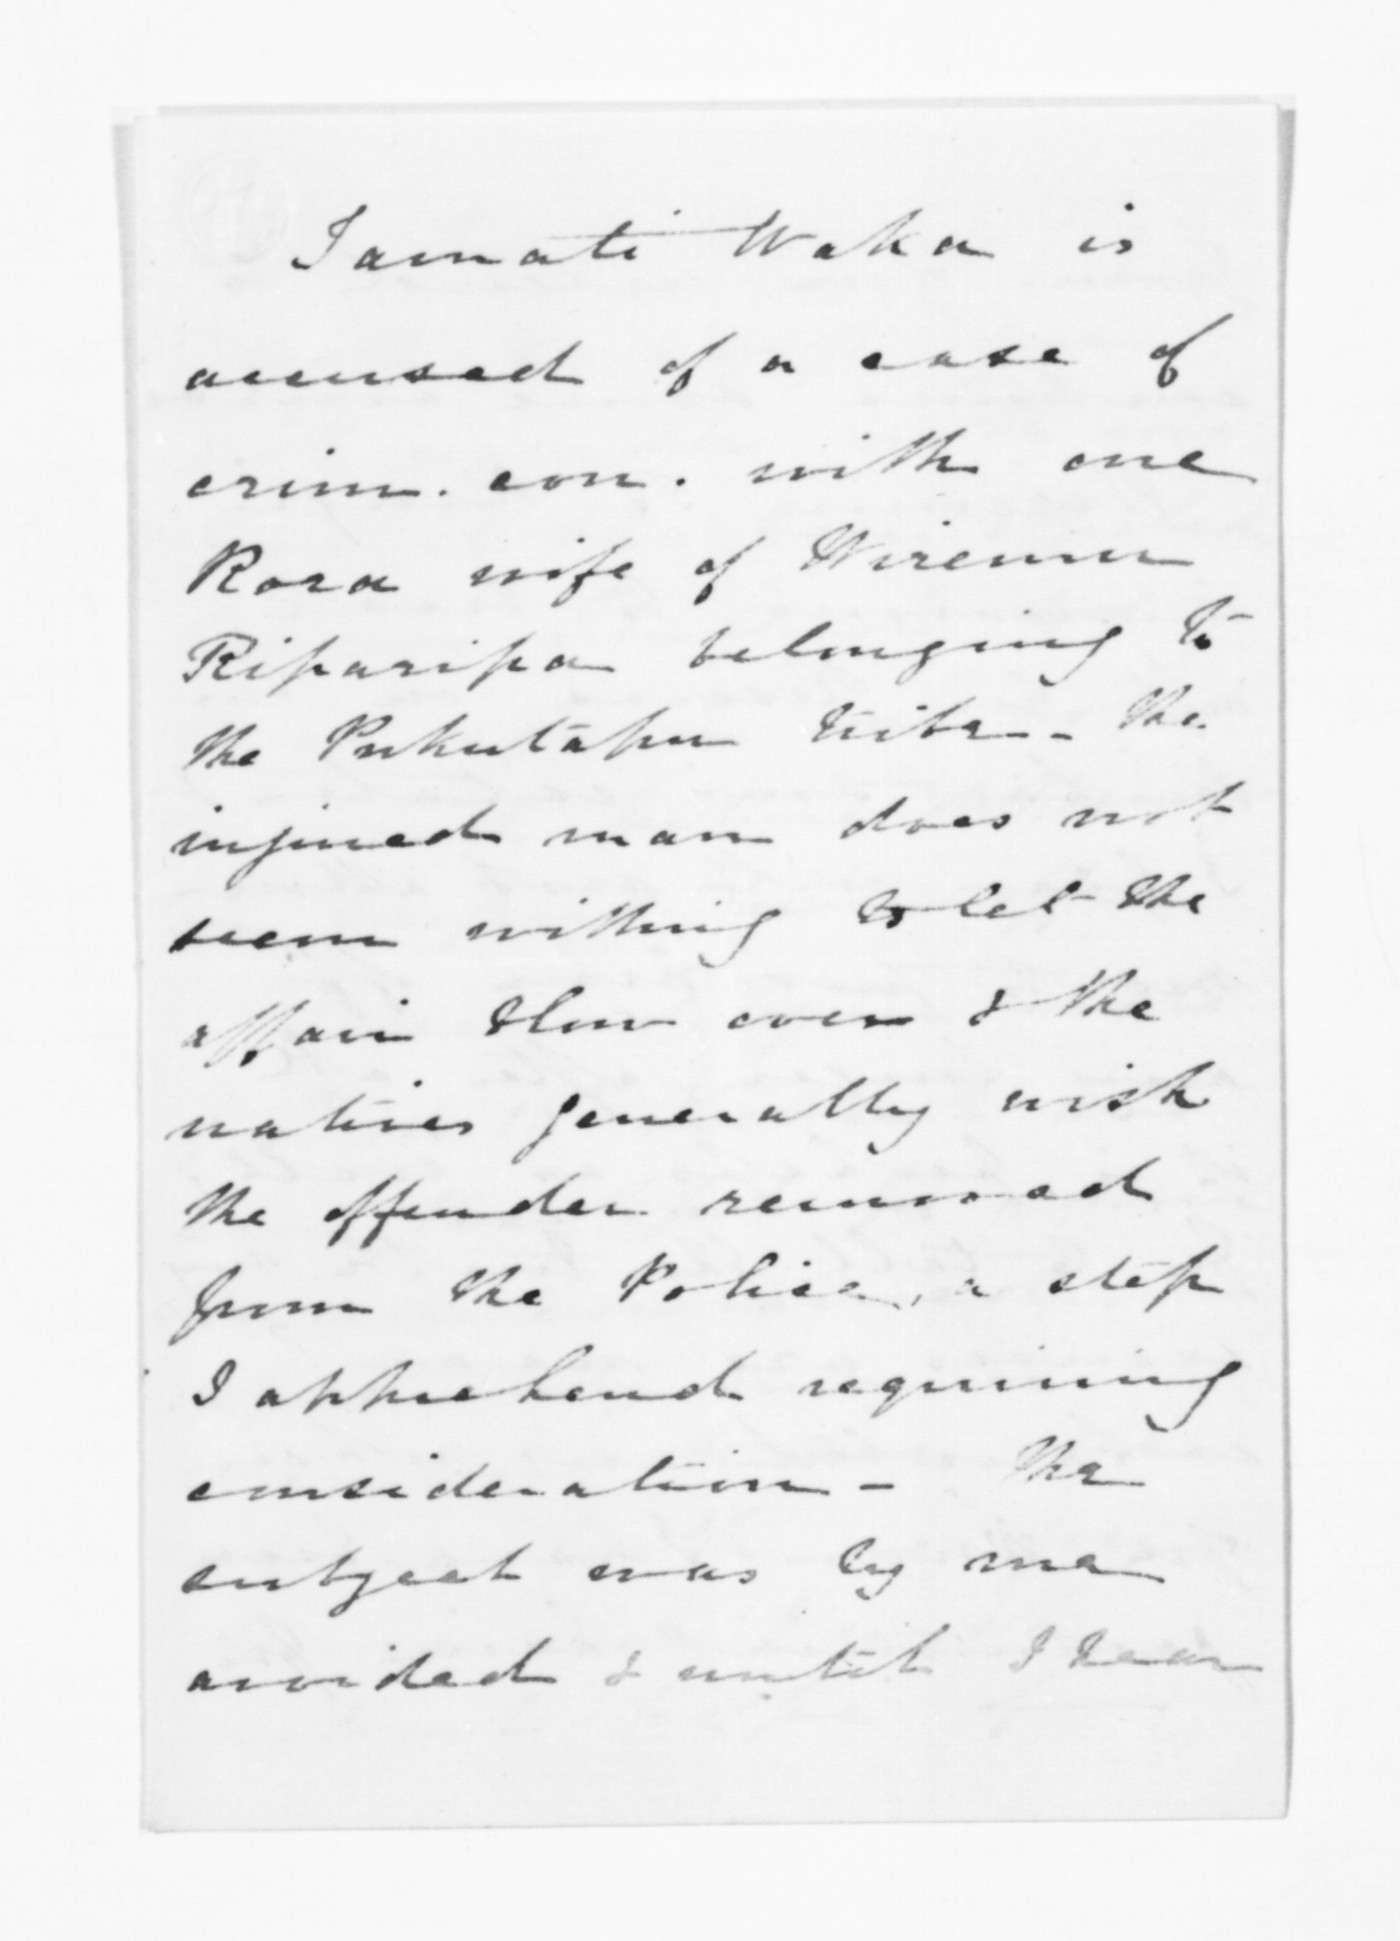 Tamati Waka is
accused of a case of
crim. con. with one
Rora wife of Wiremu
Riparipa belonging to
the Pukutapu tribe - The
injured man does not
seem willing to let the
affair blow over & the
natives generally wish
the offender removed
from the Police, a step
I apprehend requiring
consideration - The
subject was by me
avoided & until I hear